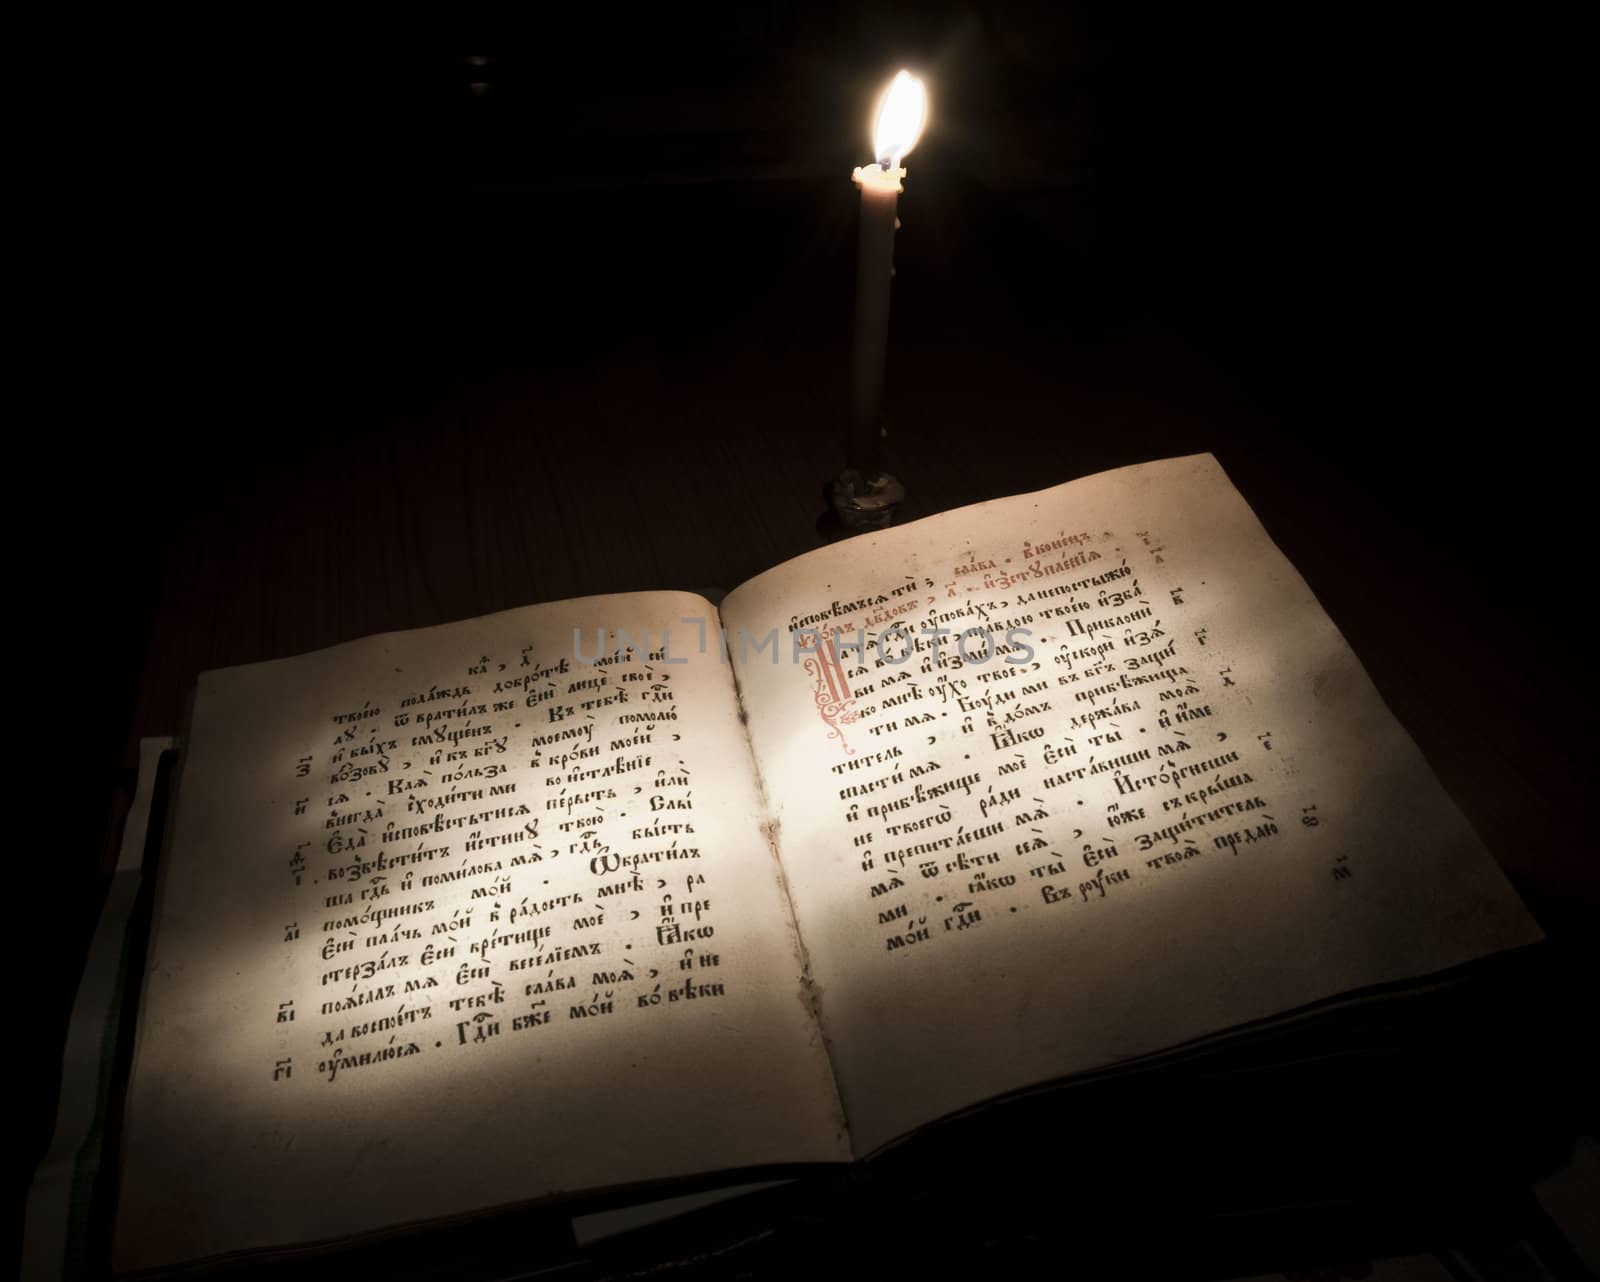 каѳ҃, д҃
твоѐю пода́ждь добро́тѣ мое́й си́
лꙋ . ѿврати́лъ же є҆сѝ лицѐ своѐ ,
з҃ и҆ бы́хъ смꙋще́нъ . Къ тебѣ̀ гд҇и
воззовꙋ̀ , и҆ къ бг҃ꙋ моемоу̀ помолю́
и҃ сѧ . Каѧ̀ по́льза в кро́ви мое́й ,
внегда̀ сходи́ти ми во и҆стлѣ́нїе .
ѳ҃ Є҆да̀ и҆сповѣ́стьтисѧ пе́рсть , и҆лѝ
возвѣсти́тъ и҆́стинꙋ твою̀ . Слы́
і҃ ша гд҇ь и҆ поми́лова мѧ̀ , гд҇ь бы́сть
помо́щникъ мо́й . Ѿврати́лъ
а҃і є҆сѝ пла́чь мо́й в ра́дость мнѣ̀ , ра
стерза́лъ є҆сѝ вре́тище моѐ , и҆ пре
поѧ́салъ мѧ є҆сѝ весе́лїемъ . Ꙗ҆́кѡ
в҃і да воспое́тъ тебѣ̀ сла́ва моѧ̀ , и҆ не
г҃і оу҆милю́сѧ . Гд҇и бж҃е мо́й во́ вѣки
и҆сповѣ́мъсѧ тѝ : сла́ва . в коне́цъ
ѱало́мъ дв҃довъ , л҃ . и҆зстꙋпле́нїѧ .
На тѧ̀ гд҇и оу҆пова́хъ , да не постыжю́
сѧ во́ вѣки , пра́вдою твое́ю и҆зба́
в҃ ви мѧ и҆ и҆зми́ мѧ . Приклонѝ
ко мнѣ̀ оу҆́хо твоѐ , оу҆скорѝ и҆зѧ́
г҃ ти мѧ . Боу́ди ми въ бг҃ъ защи́
титель , и҆ в до́мъ прибѣ́жища
д҃ спасти́ мѧ . Ꙗ҆́кѡ держа́ва моѧ̀
и҆ прибѣ́жище моѐ є҆сѝ ты̀ . и҆ и҆́ме
не твоегѡ̀ ра́ди наста́виши мѧ̀ ,
є҃ и҆ препита́еши мѧ̀ . И҆сто́ргнеши
мѧ̀ ѿ сѣ́ти сеѧ̀ , ю҆́же съкры́ша
ми . ꙗ҆́кѡ ты̀ є҆сѝ защи́титель
мо́й гд҇и . Въ роу́ки твоѧ̀ предаю̀
UNLIMPHOTOS